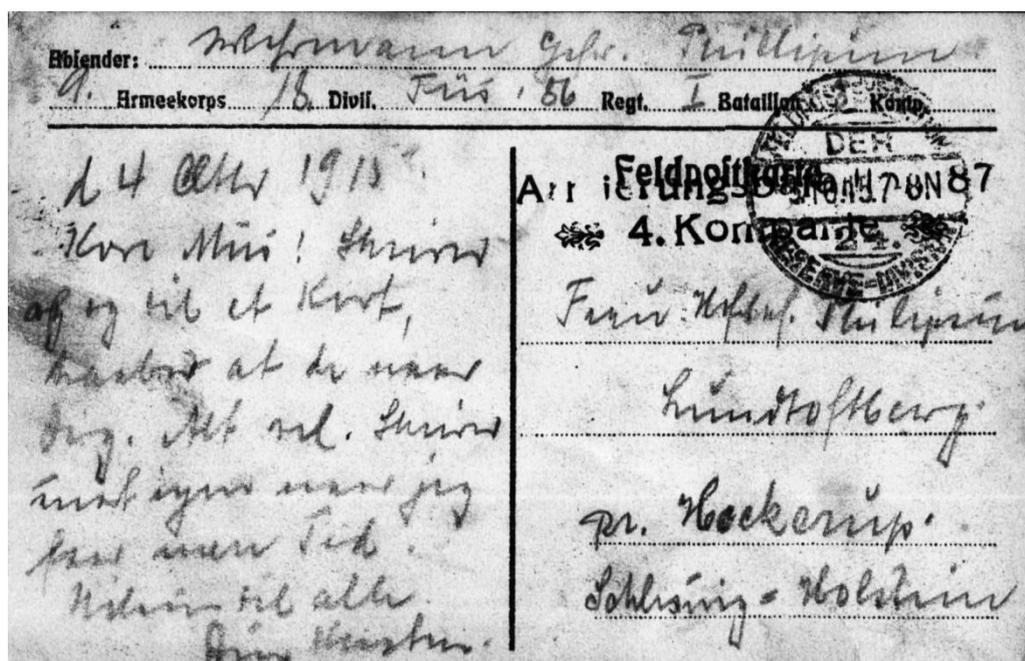 Absender: Wehrmann Gefr. Phillipsen
9. Armeekorps 18. Divis. Füs. 86 Regt. I Bataillon 3 Komp.
d 4 Oktbr 1915
Kære Mus! Skriver
af og til et Kort,
haaber at de naar
dig. Alt vel. Skriver
nok igen naar jeg
faar mere Tid.
Hilsen til alle.
Din Kresten.
Feldpostkarte
Armierungsbataillon 87
4. Kompanie
DER
5.10.15.7-8N
24.
RESERVE-DIVISION
Frau Hofbes. Philipsen
Lundtoftberg
pr. Hockerup.
Schleswig-Holstein